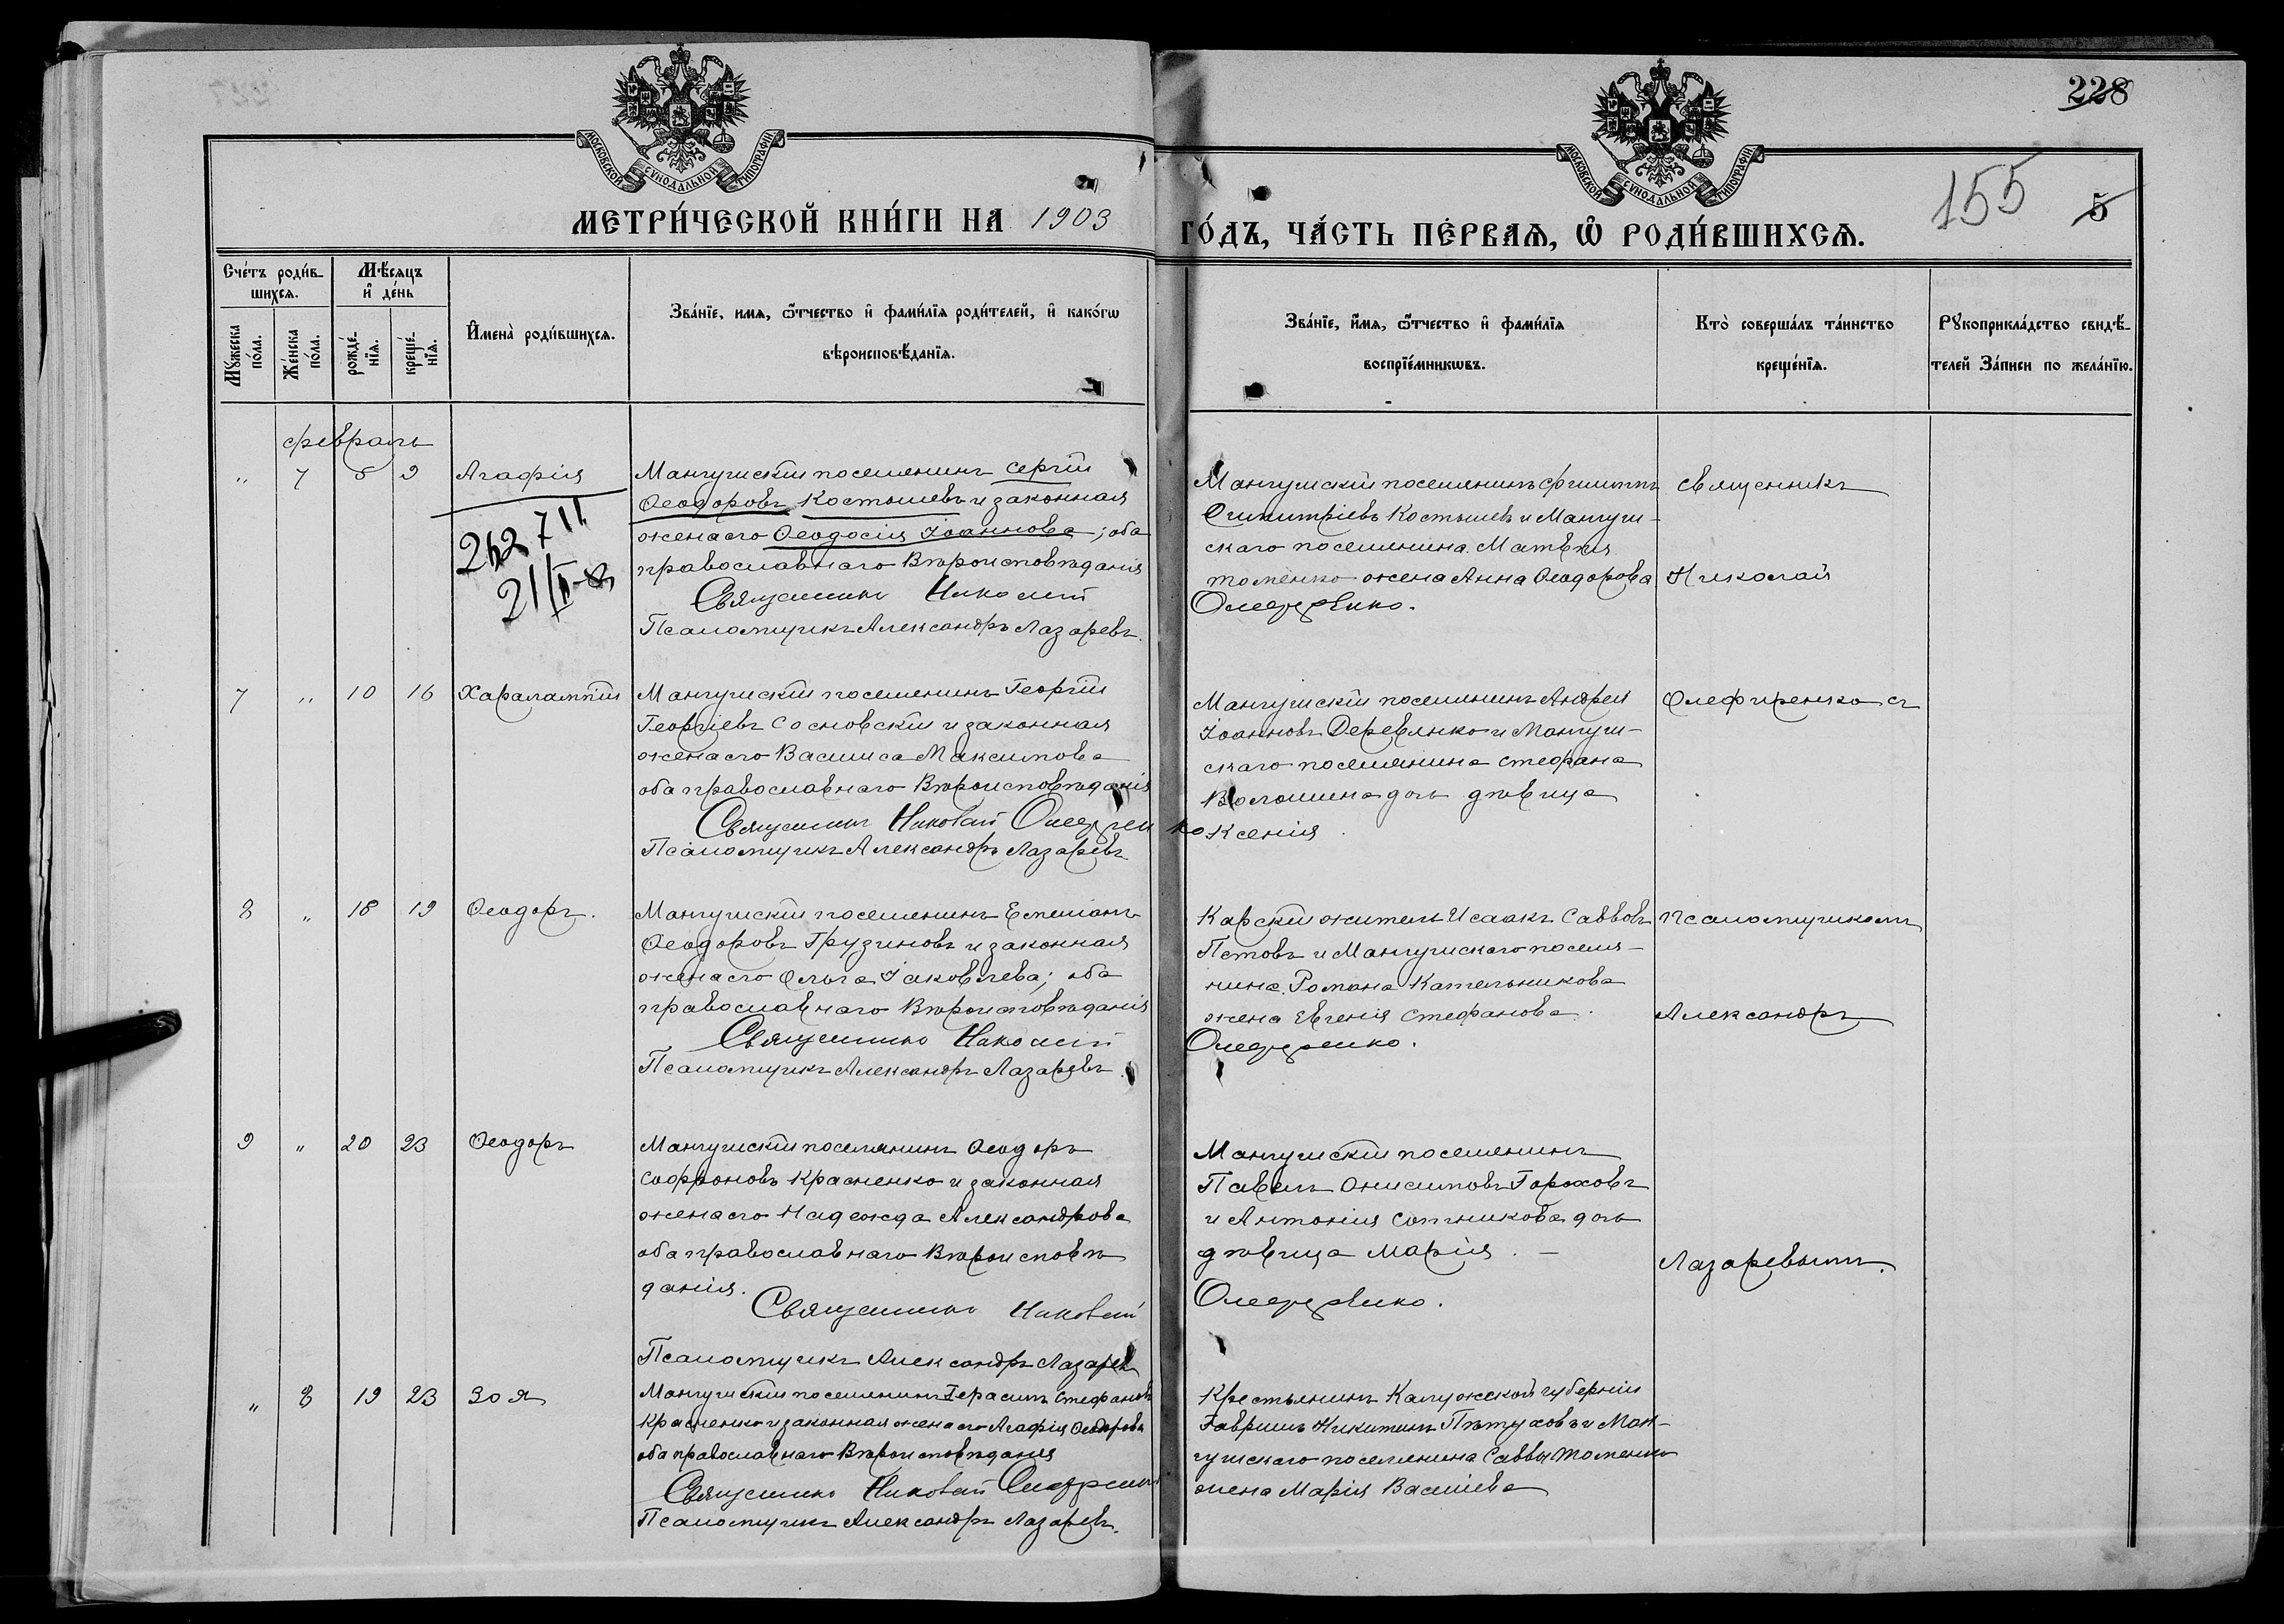 228
155
5
МОСКОВСКОЙ СУНОДАЛЬНОЙ ТИПОГРАФІИ
МОСКОВСКОЙ СУНОДАЛЬНОЙ ТИПОГРАФІИ
МЕТРИ́ЧЕСКОЙ КНИ́ГИ НА 1903 ГО́ДЪ, ЧА́СТЬ ПЕ́РВАѦ, Ѡ҆ РОДИ́ВШИХСѦ.
Сче́тъ роди́в-
шихсѧ.
Мѣ́сѧцъ
и҆ де́нь
Мꙋ́жеска
по́ла.
Же́нска
по́ла.
рожде́-
нїѧ.
креще́-
нїѧ.
И҆мена̀ роди́вшихсѧ.
Зва́нїе, имѧ, ѻ҆́тчество и҆ фами́лїѧ роди́телей, и҆ како́гѡ
вѣроисповѣ́данїѧ.
Зва́нїе, и҆́мѧ, ѻ҆́тчество и҆ фами́лїѧ
воспрїе́мникѡвъ.
Кто̀ соверша́лъ та́инство
креще́нїѧ.
Рꙋкоприкла́дство свидѣ́-
телей За́писи по жела́нїю.
февраль
" 7 5 9 Агафія
Мангушскій поселянинъ Сергій
Ѳеодоровъ Костышевъ и законная
жена его Ѳеодосія Іоаннова; оба
православнаго Вѣроисповѣданія
Священникъ Николай
Псаломщикъ Александръ Лазаревъ.
Мангушскій поселянинъ Филиппъ
Димитріевъ Костышевъ и Мангуш-
скаго поселянина Матвѣя
Томенко жена Анна Ѳеодорова
Олефиренко.
священникъ
Николай
7 " 10 16 Харалампій
Мангушскій поселянинъ Георгій
Георгіевъ Сосновскій и законная
жена его Васишса Максимова
оба православнаго Вѣроисповѣданія
Священникъ Николай Олефиренко
Псаломщикъ Александръ Лазаревъ
Мангушскій поселянинъ Андрей
Іоанновъ Деревянко и Мангуш-
скаго поселянина Стефана
Волошина дочь дѣвица
Ксенія
Олефиренко съ
8 " 18 19 Ѳеодоръ.
Мангушскій поселянинъ Емеліанъ
Ѳеодоровъ Грузиновъ и законная
жена его Ольга Іаковлева; оба
православнаго Вѣроисповѣданія
Священникъ Николай
Псаломщикъ Александръ Лазаревъ.
Карскій житель Исаакъ Саввовъ
Петовъ и Мангушскаго поселя-
нина Романа Кательникова
жена Евгенія Стефанова.
Олефиренко.
псаломщикомъ
Александръ
9 " 20 23 Ѳеодоръ
Мангушскій поселянинъ Ѳеодоръ
Софроновъ Красненко и законная
жена его Надежда Александрова
оба православнаго Вѣроисповѣ
данія.
Священникъ Николай
Псаломщикъ Александръ Лазарев
Мангушскій поселянинъ
Павелъ Онисимовъ Гороховъ
и Антонія Сотникова дочь
дѣвица Марія. —
Олефиренко.
Лазаревымъ.
" 8 19 23 Зоя
Мангушскій поселянинъ Герасимъ Стефановъ
Красненко и законная жена его Агафія Ѳеодорова
оба православнаго Вѣроисповѣданія
Священникъ Николай Олефиренко
Псаломщикъ Александръ Лазаревъ.
Крестьянинъ Калужской губерніи
Гавріилъ Никитинъ Пѣтуховъ и Ман-
гушскаго поселянина Саввы Томенко
жена Марія Василіева